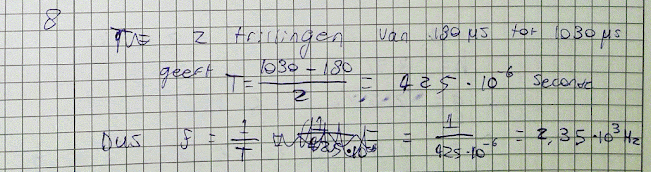 8
2 trillingen van 180 μs tot 1030 μs
geeft T = (1030 - 180) / 2 = 425 · 10⁻⁶ seconde
Dus f = 1/T = 1/(425 · 10⁻⁶) = 2,35 · 10³ Hz